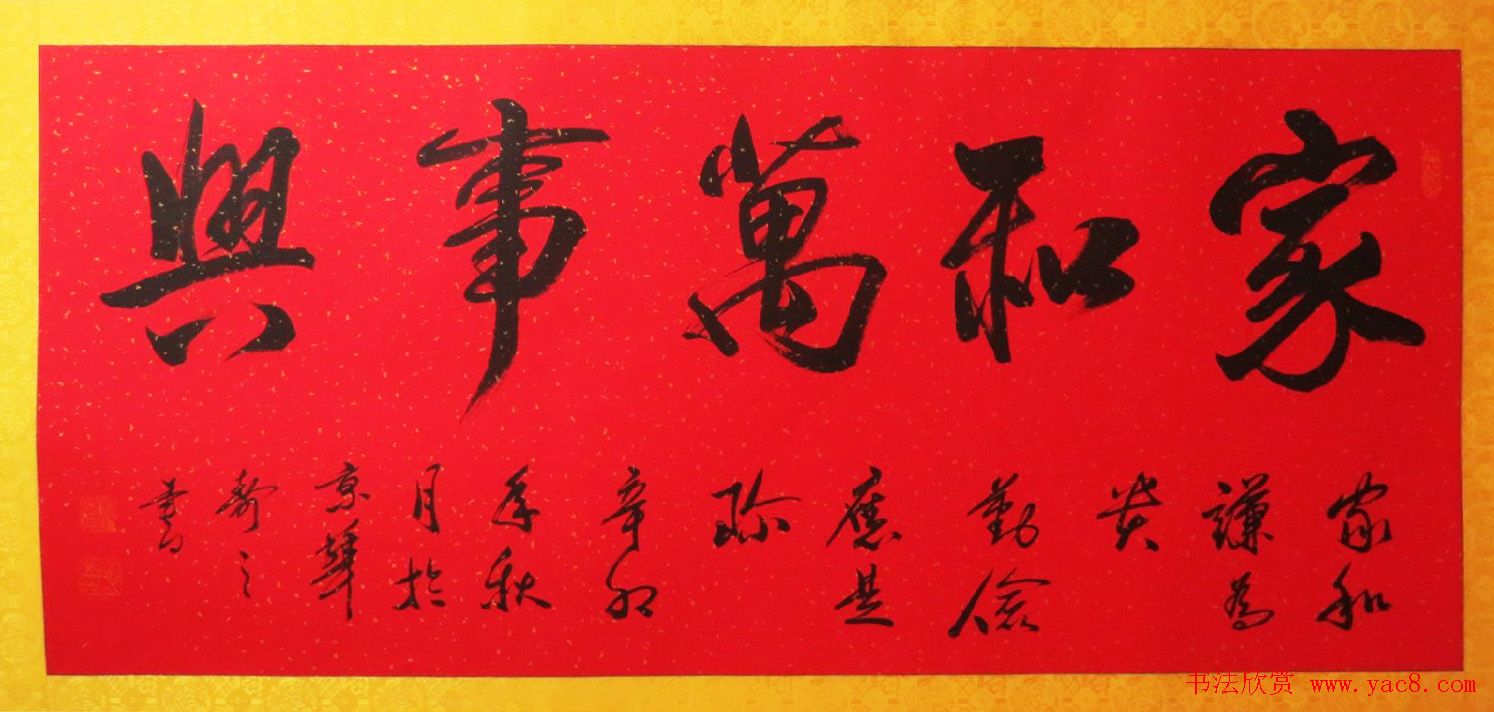 家和萬事興
家和
謙為
貴
勤儉
應是
珍
辛卯
年秋
月於
京華
之
書
书法欣赏 www.yac8.com